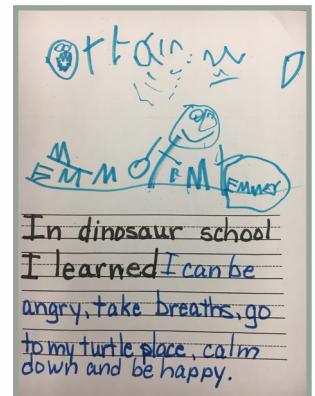 Emmer
In dinosaur school
I learned I can be
angry, take breaths, go
to my turtle place, calm
down and be happy.